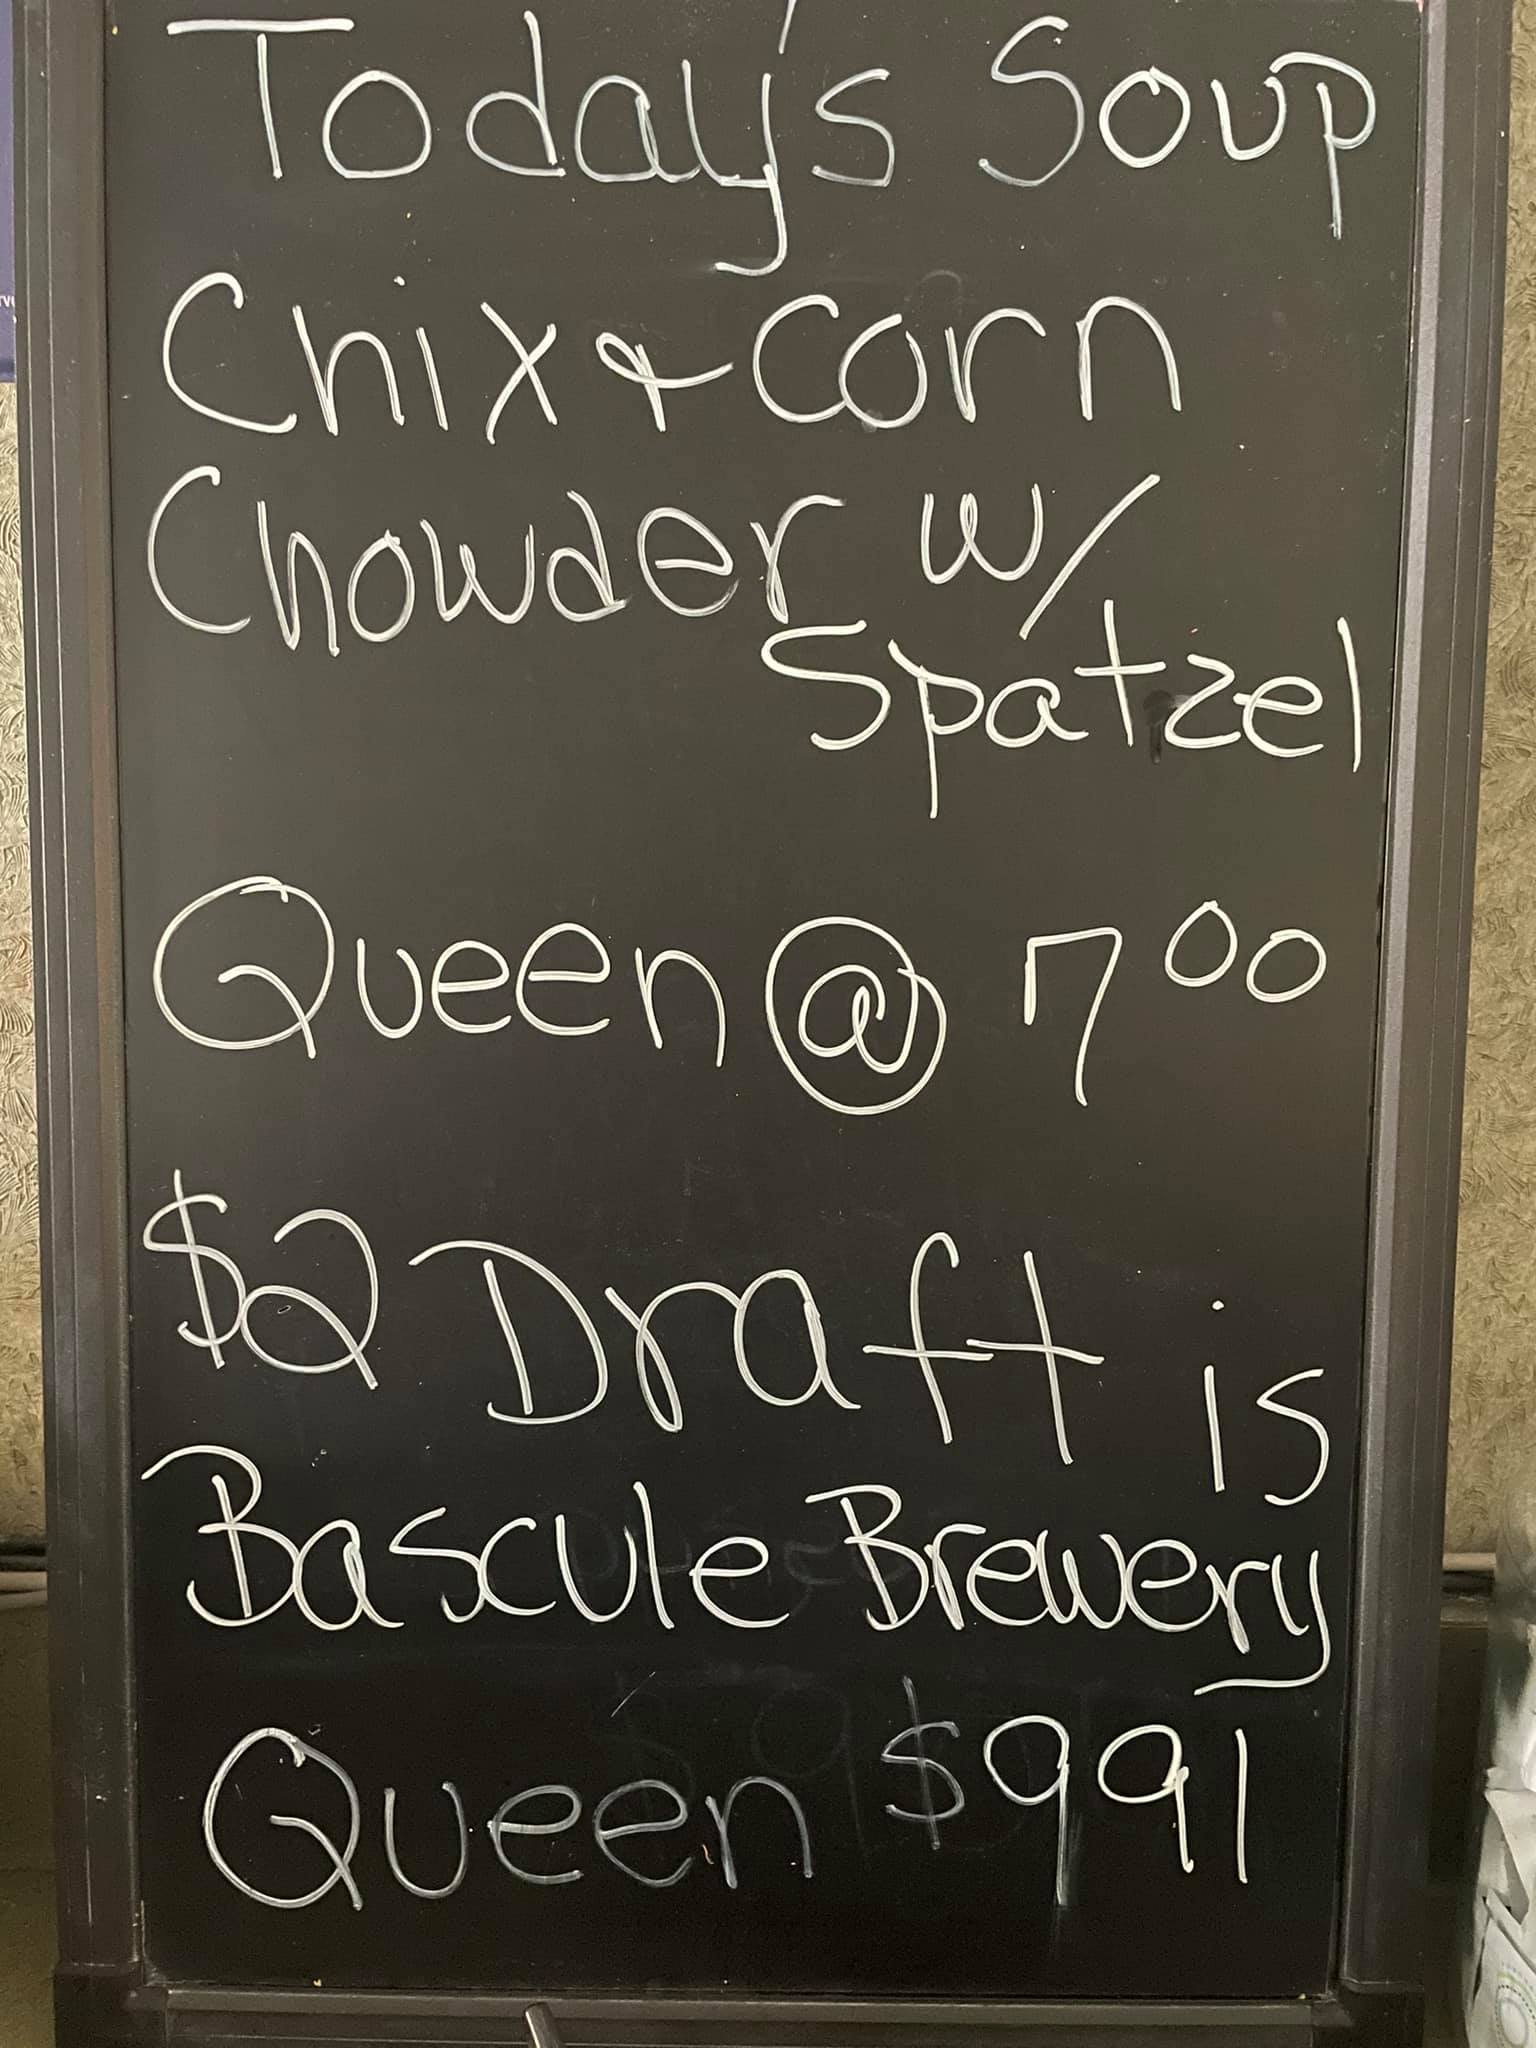 Today's Soup
Chix & Corn
Chowder w/
Spatzel
Queen @ 7⁰⁰
$2 Draft is
Bascule Brewery
Queen $991